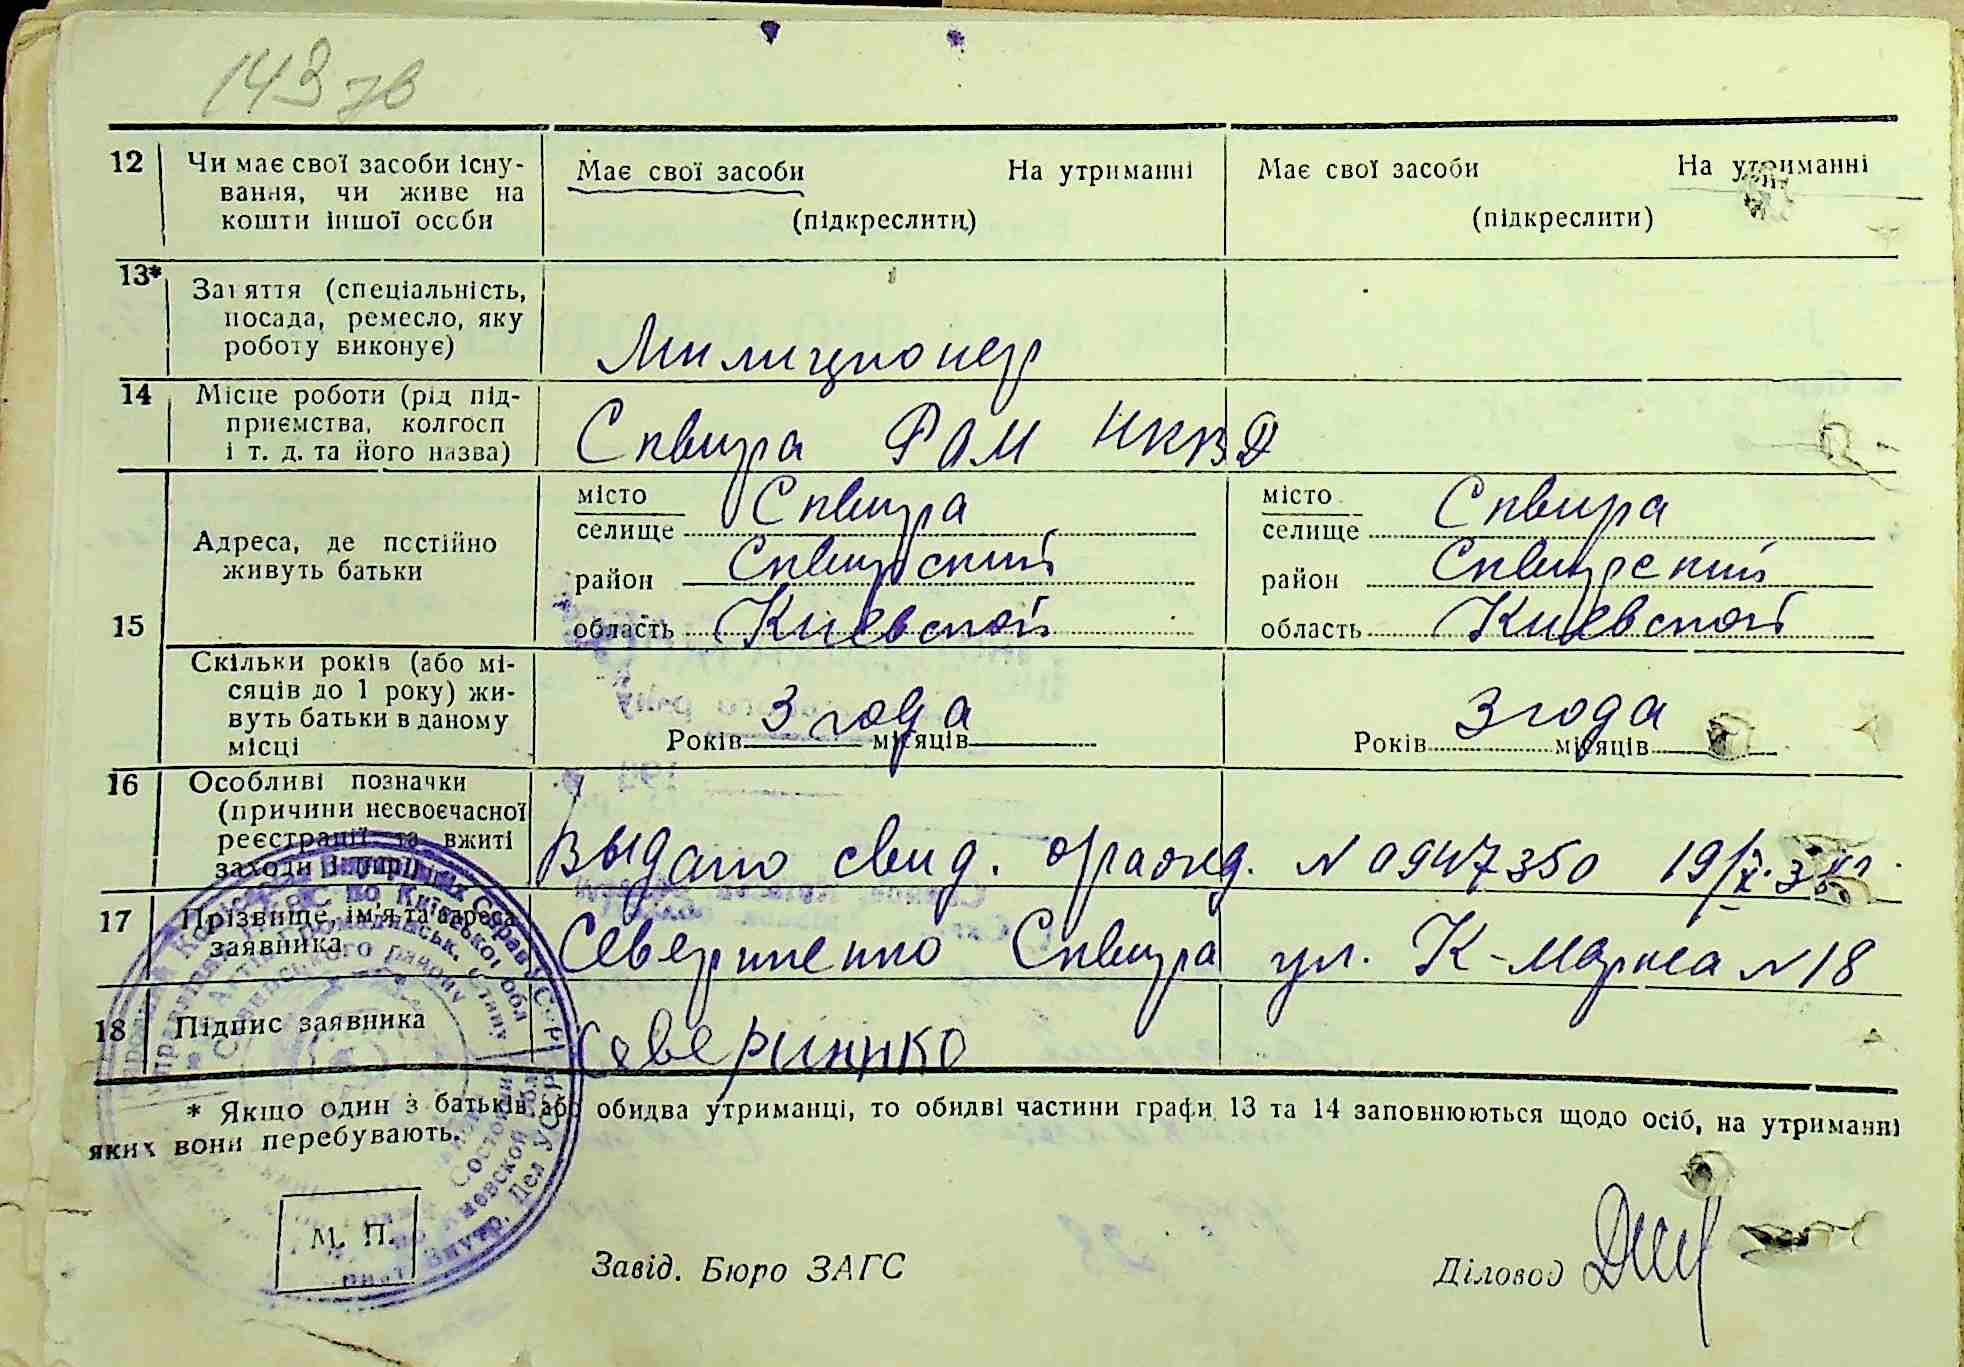 143 зв
12 Чи має свої засоби існу- Має свої засоби На утриманні Має свої засоби На утриманні
вання, чи живе на
кошти іншої особи (підкреслити) (підкреслити)
13* Заняття (спеціальність,
посада, ремесло, яку
роботу виконує) Милиционер
14 Місце роботи (рід під-
приємства, колгосп Сквира РОМ НКВД
і т. д. та його назва)
місто Сквира місто Сквира
селище селище
Адреса, де постійно
живуть батьки район Сквирский район Сквирский
15 область Киевской область Киевской
Скільки років (або мі-
сяців до 1 року) жи-
вуть батьки в даному 3 года 3 года
місці Років місяців Років місяців
16 Особливі позначки
(причини несвоєчасної
реєстрації та вжиті
заходи і інші Выдано свид. о рожд. N 0947350 19/X
17 Прізвище, ім'я та адреса
заявника Севериненко Сквира ул. К-Маркса N 18
18 Підпис заявника Севериннко
* Якщо один з батьків або обидва утриманці, то обидві частини графи 13 та 14 заповнюються щодо осіб, на утриманні
яких вони перебувають.
М. П.
Завід. Бюро ЗАГС Діловод